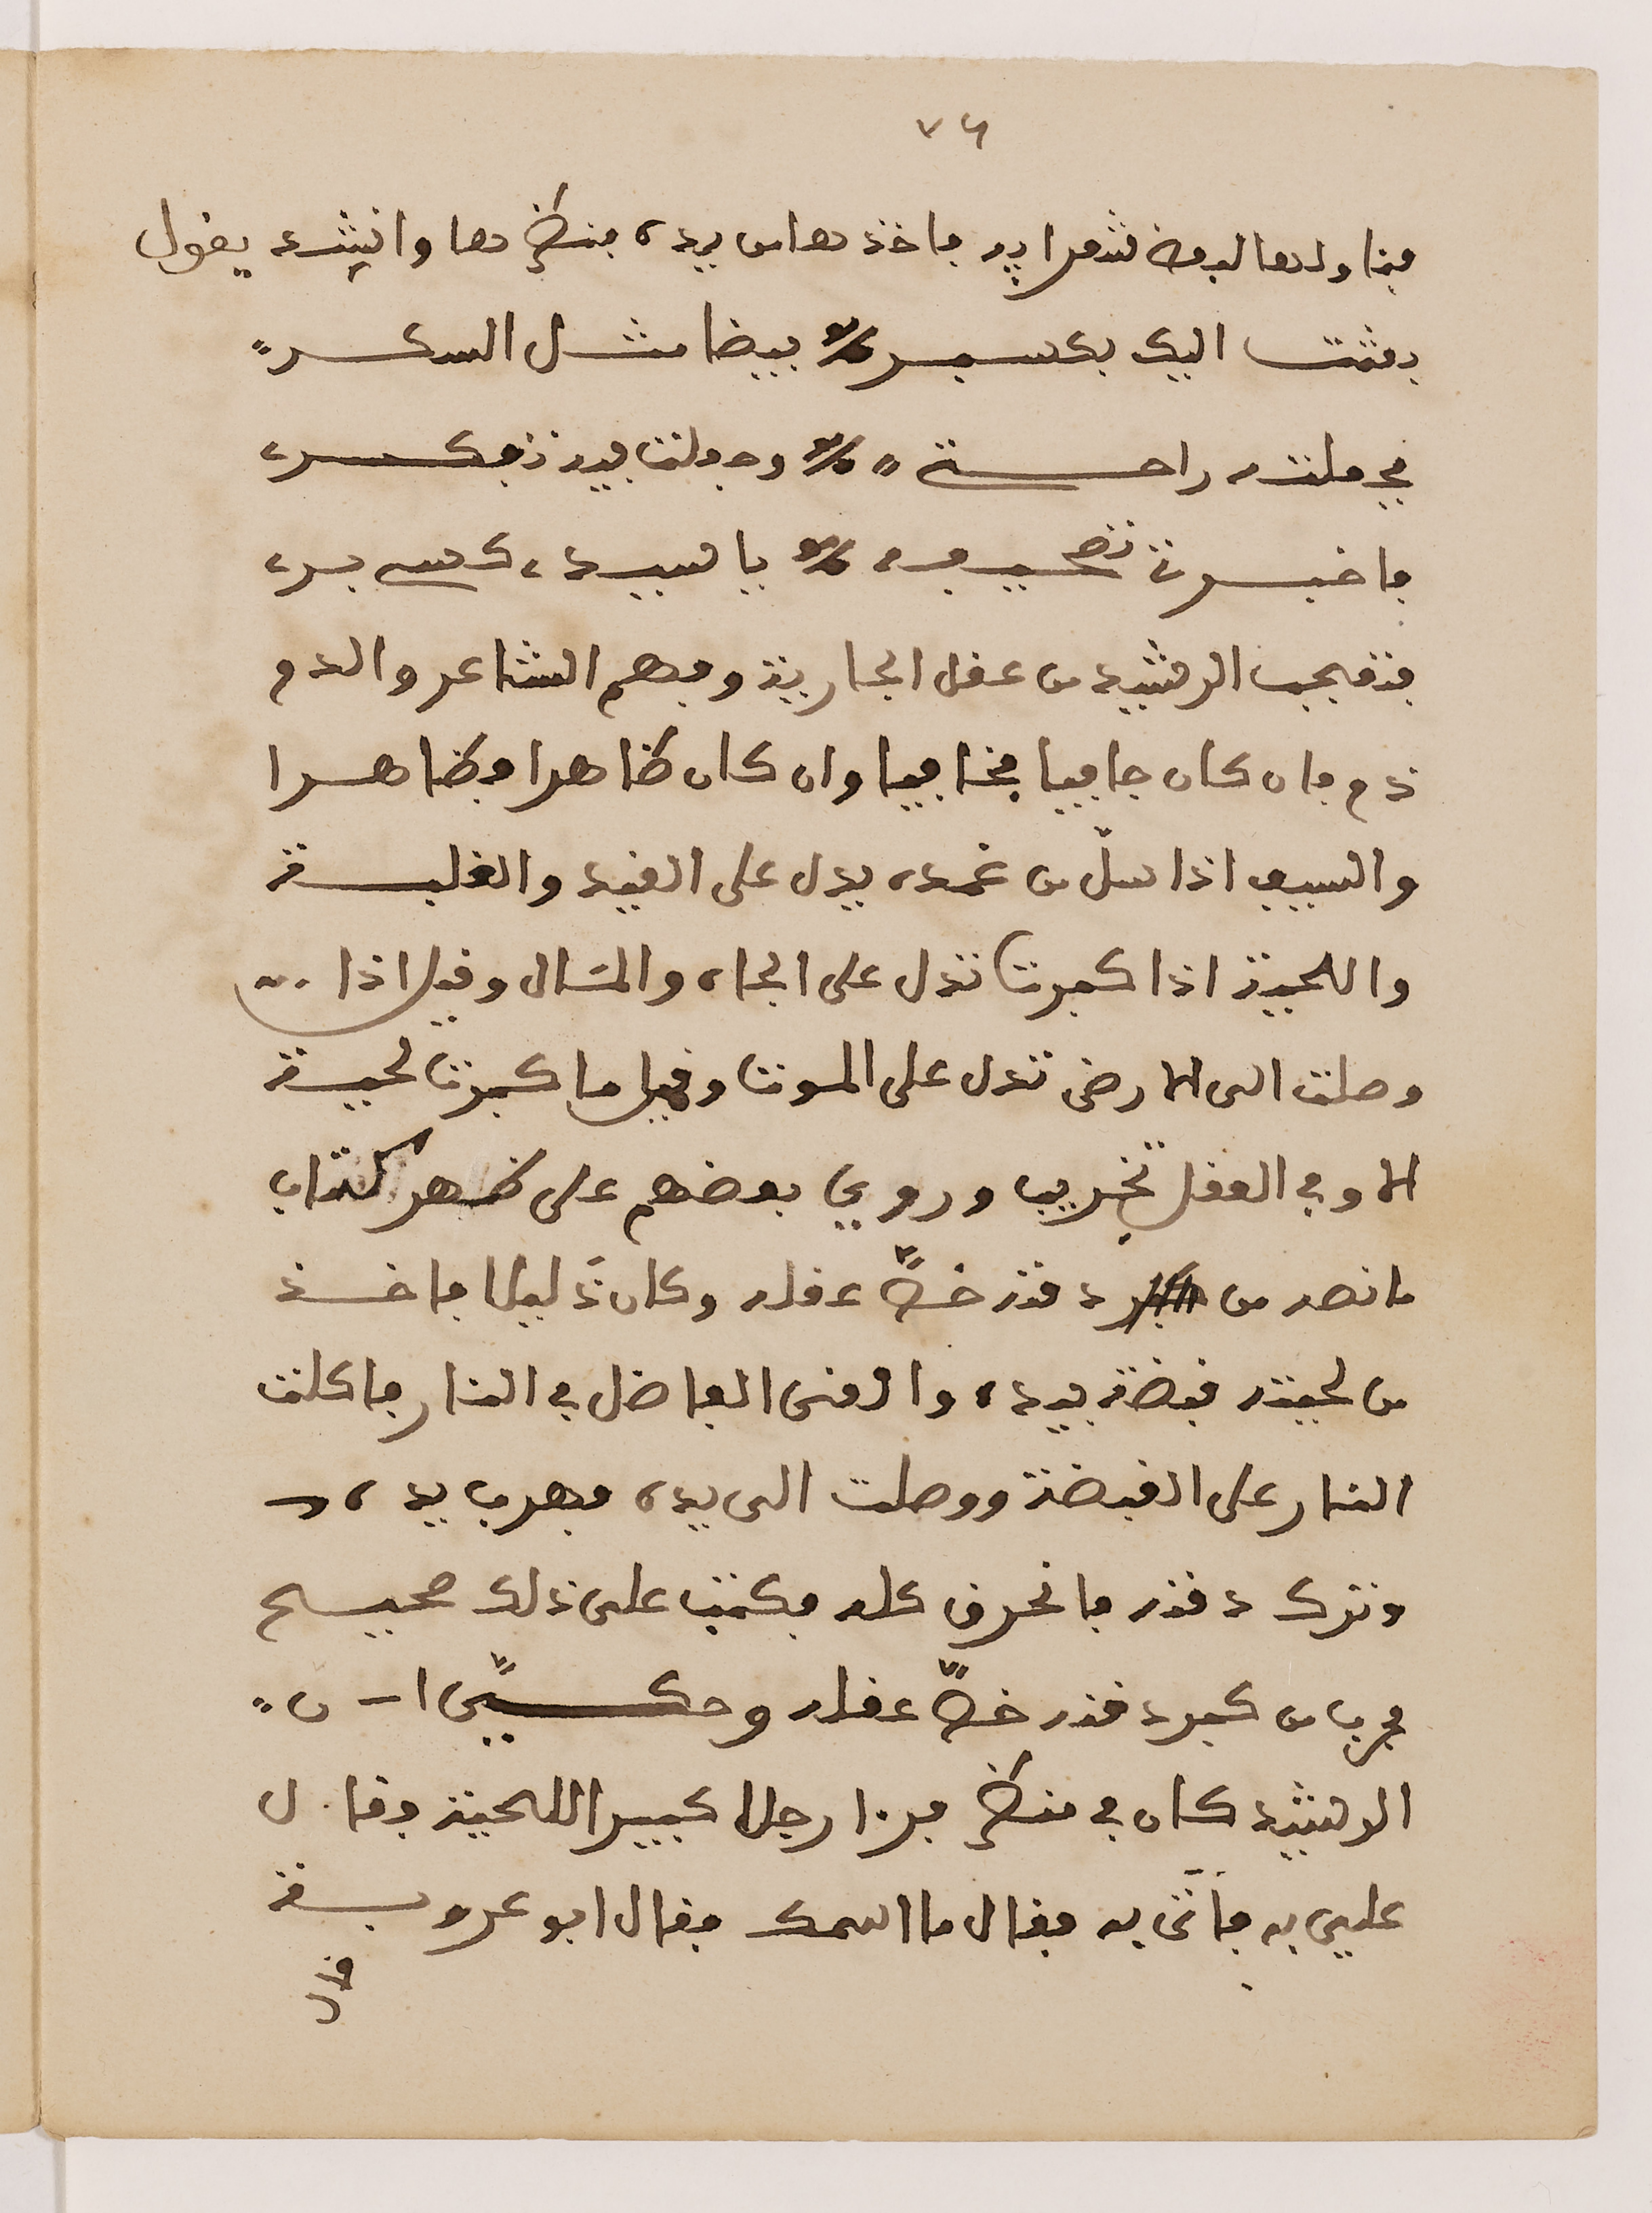 ٧٦
فناولها لبعض شعرايه فاخذها من يده فنظرها وانشد يقول
بعثت اليك بكسبر بيضا مثل السكر
فجعلته راحة وجعلت فيه تفكره
فاخبرت تصحيفه يا سيده كسبره
فتعجب الرشيد من عقل الجارية وفهم الشاعر والدم
دم فان كان جافيا فخافيا وان كان ظاهرا فظاهرا
والسيف اذا سلّ من غمده يدل على القيد والغلبة
واللحية اذا كبرت تدل على الجاه والمال وقيل اذا
وصلت الى الارض تدل على الموت وقيل ما كبرت لحية
الا وفي العقل تخريب وروي بعضهم على ظهر كتاب
ما نصه من كبر دقنه خفّ عقله وكان ذليلا فاخذ
من لحيته قبضة بيده والقى الفاضل في النار فاكلت
النار على القبضة ووصلت الى يده فهرب يده
وترك دقنه فانحرق كله فكتب على ذلك صحيح
مجرب من كبر دقنه خفّ عقله وحكي ان
الرشيد كان في منظر فرءا رجلا كبير اللحية وقال
عليي به فأتى به فقال ما اسمك فقال ابو عروبة
قال